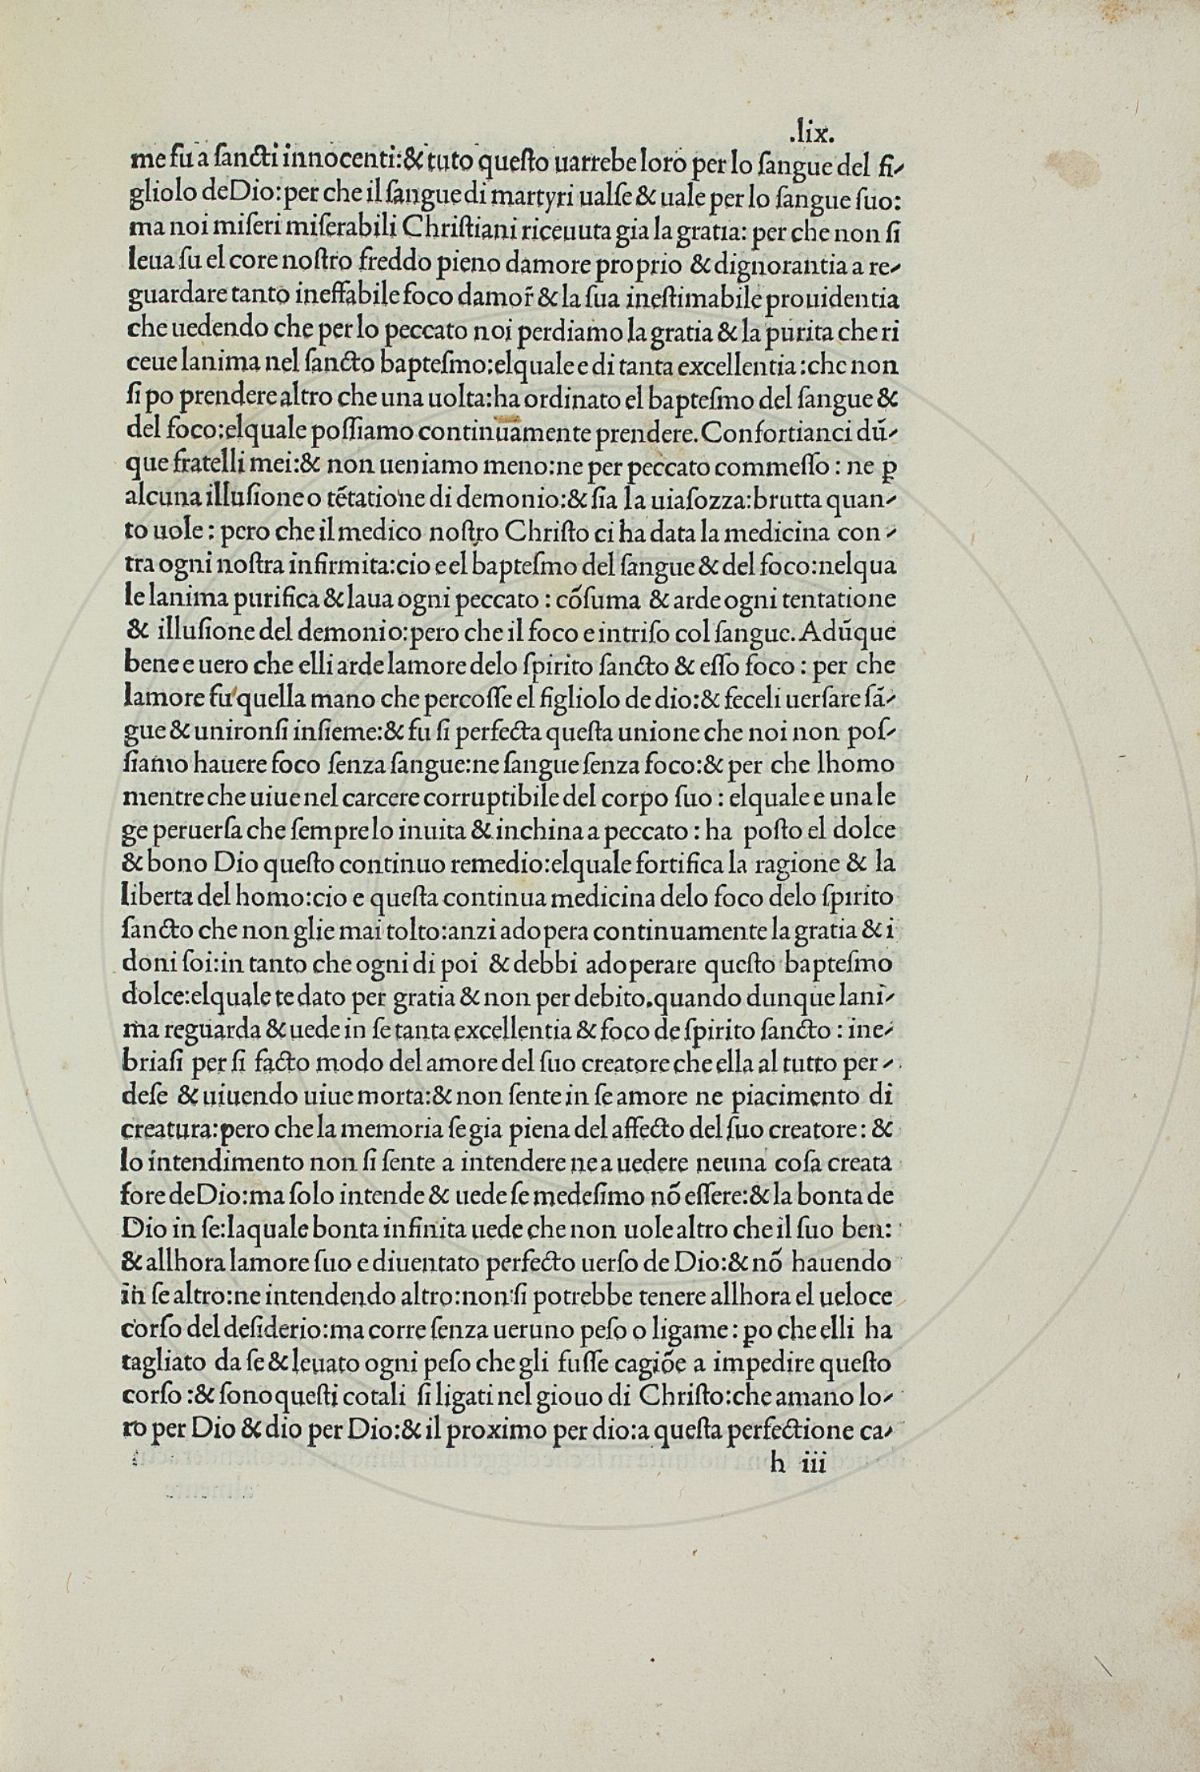 .lix.
me fu a ſancti innocenti:& tuto queſto uarrebe loro per lo ſangue del fi-
gliolo de Dio: per che il ſangue di martyri ualſe & uale per lo ſangue ſuo:
ma noi miſeri miſerabili Chriſtiani riceuuta gia la gratia: per che non ſi
leua ſu el core noſtro freddo pieno damore proprio & dignorantia a re-
guardare tanto ineffabile foco damor̃ & la ſua ineſtimabile prouidentia
che uedendo che per lo peccato noi perdiamo la gratia & la purita che ri
ceue lanima nel ſancto bapteſmo: elquale e di tanta excellentia: che non
ſi po prendere altro che una uolta: ha ordinato el bapteſmo del ſangue &
del foco: elquale poſſiamo continuamente prendere. Confortianci dū-
que fratelli mei:& non ueniamo meno: ne per peccato commeſſo: ne ꝑ
alcuna illuſione o tētatione di demonio:& ſia la uia ſozza: brutta quan-
to uole: pero che il medico noſtro Chriſto ci ha data la medicina con-
tra ogni noſtra infirmita: cio e el bapteſmo del ſangue & del foco: nelqua
le lanima purifica & laua ogni peccato: cōſuma & arde ogni tentatione
& illuſione del demonio: pero che il foco e intriſo col ſangue. Adūque
bene e uero che elli arde lamore delo ſpirito ſancto & eſſo foco: per che
lamore fu quella mano che percoſſe el figliolo de dio:& feceli uerſare ſā-
gue & unironſi inſieme:& fu ſi perfecta queſta unione che noi non poſ-
ſiamo hauere foco ſenza ſangue: ne ſangue ſenza foco:& per che lhomo
mentre che uiue nel carcere corruptibile del corpo ſuo: elquale e una le
ge peruerſa che ſempre lo inuita & inchina a peccato: ha poſto el dolce
& bono Dio queſto continuo remedio: elquale fortifica la ragione & la
liberta del homo: cio e queſta continua medicina delo foco delo ſpirito
ſancto che non glie mai tolto: anzi adopera continuamente la gratia & i
doni ſoi: in tanto che ogni di poi & debbi adoperare queſto bapteſmo
dolce: elquale te dato per gratia & non per debito. quando dunque lani-
ma reguarda & uede in ſe tanta excellentia & foco de ſpirito ſancto: ine-
briaſi per ſi facto modo del amore del ſuo creatore che ella al tutto per-
deſe & uiuendo uiue morta:& non ſente in ſe amore ne piacimento di
creatura: pero che la memoria ſe gia piena del affecto del ſuo creatore: &
lo intendimento non ſi ſente a intendere ne a uedere neuna coſa creata
fore de Dio: ma ſolo intende & uede ſe medeſimo nō eſſere:& la bonta de
Dio in ſe: laquale bonta infinita uede che non uole altro che il ſuo ben:
& allhora lamore ſuo e diuentato perfecto uerſo de Dio:& nō hauendo
in ſe altro: ne intendendo altro: non ſi potrebbe tenere allhora el ueloce
corſo del deſiderio: ma corre ſenza ueruno peſo o ligame: ꝑo che elli ha
tagliato da ſe & leuato ogni peſo che gli fuſſe cagiōe a impedire queſto
corſo:& ſono queſti cotali ſi ligati nel giouo di Chriſto: che amano lo-
ro per Dio & dio per Dio:& il proximo per dio: a queſta perfectione ca-
h iii